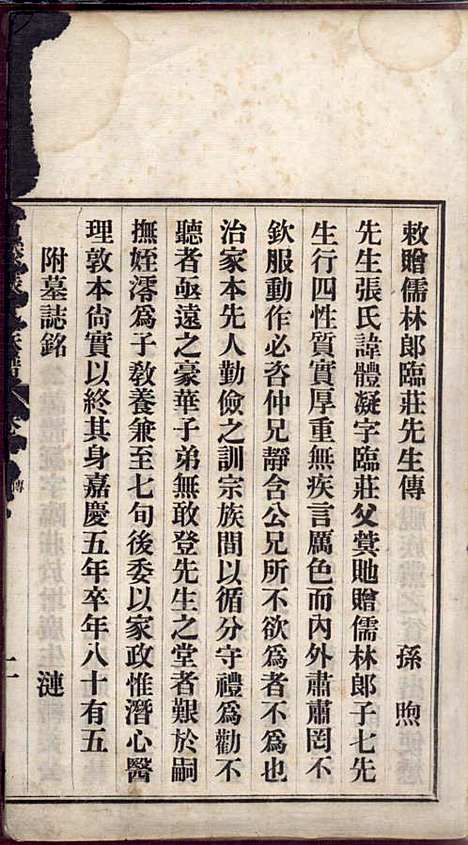 敕贈儒林郎臨莊先生傳 孫 煦
先生張氏諱體凝字臨莊父蕡貤贈儒林郎子七先
生行四性質實厚重無疾言厲色而內外肅肅罔不
欽服動作必咨仲兄靜含公兄所不欲為者不為也
治家本先人勤儉之訓宗族間以循分守禮為勸不
聽者亟遠之豪華子弟無敢登先生之堂者艱於嗣
撫姪澪為子敎養兼至七旬後委以家政惟潛心醫
理敦本尙實以終其身嘉慶五年卒年八十有五
附墓誌銘 漣
傳